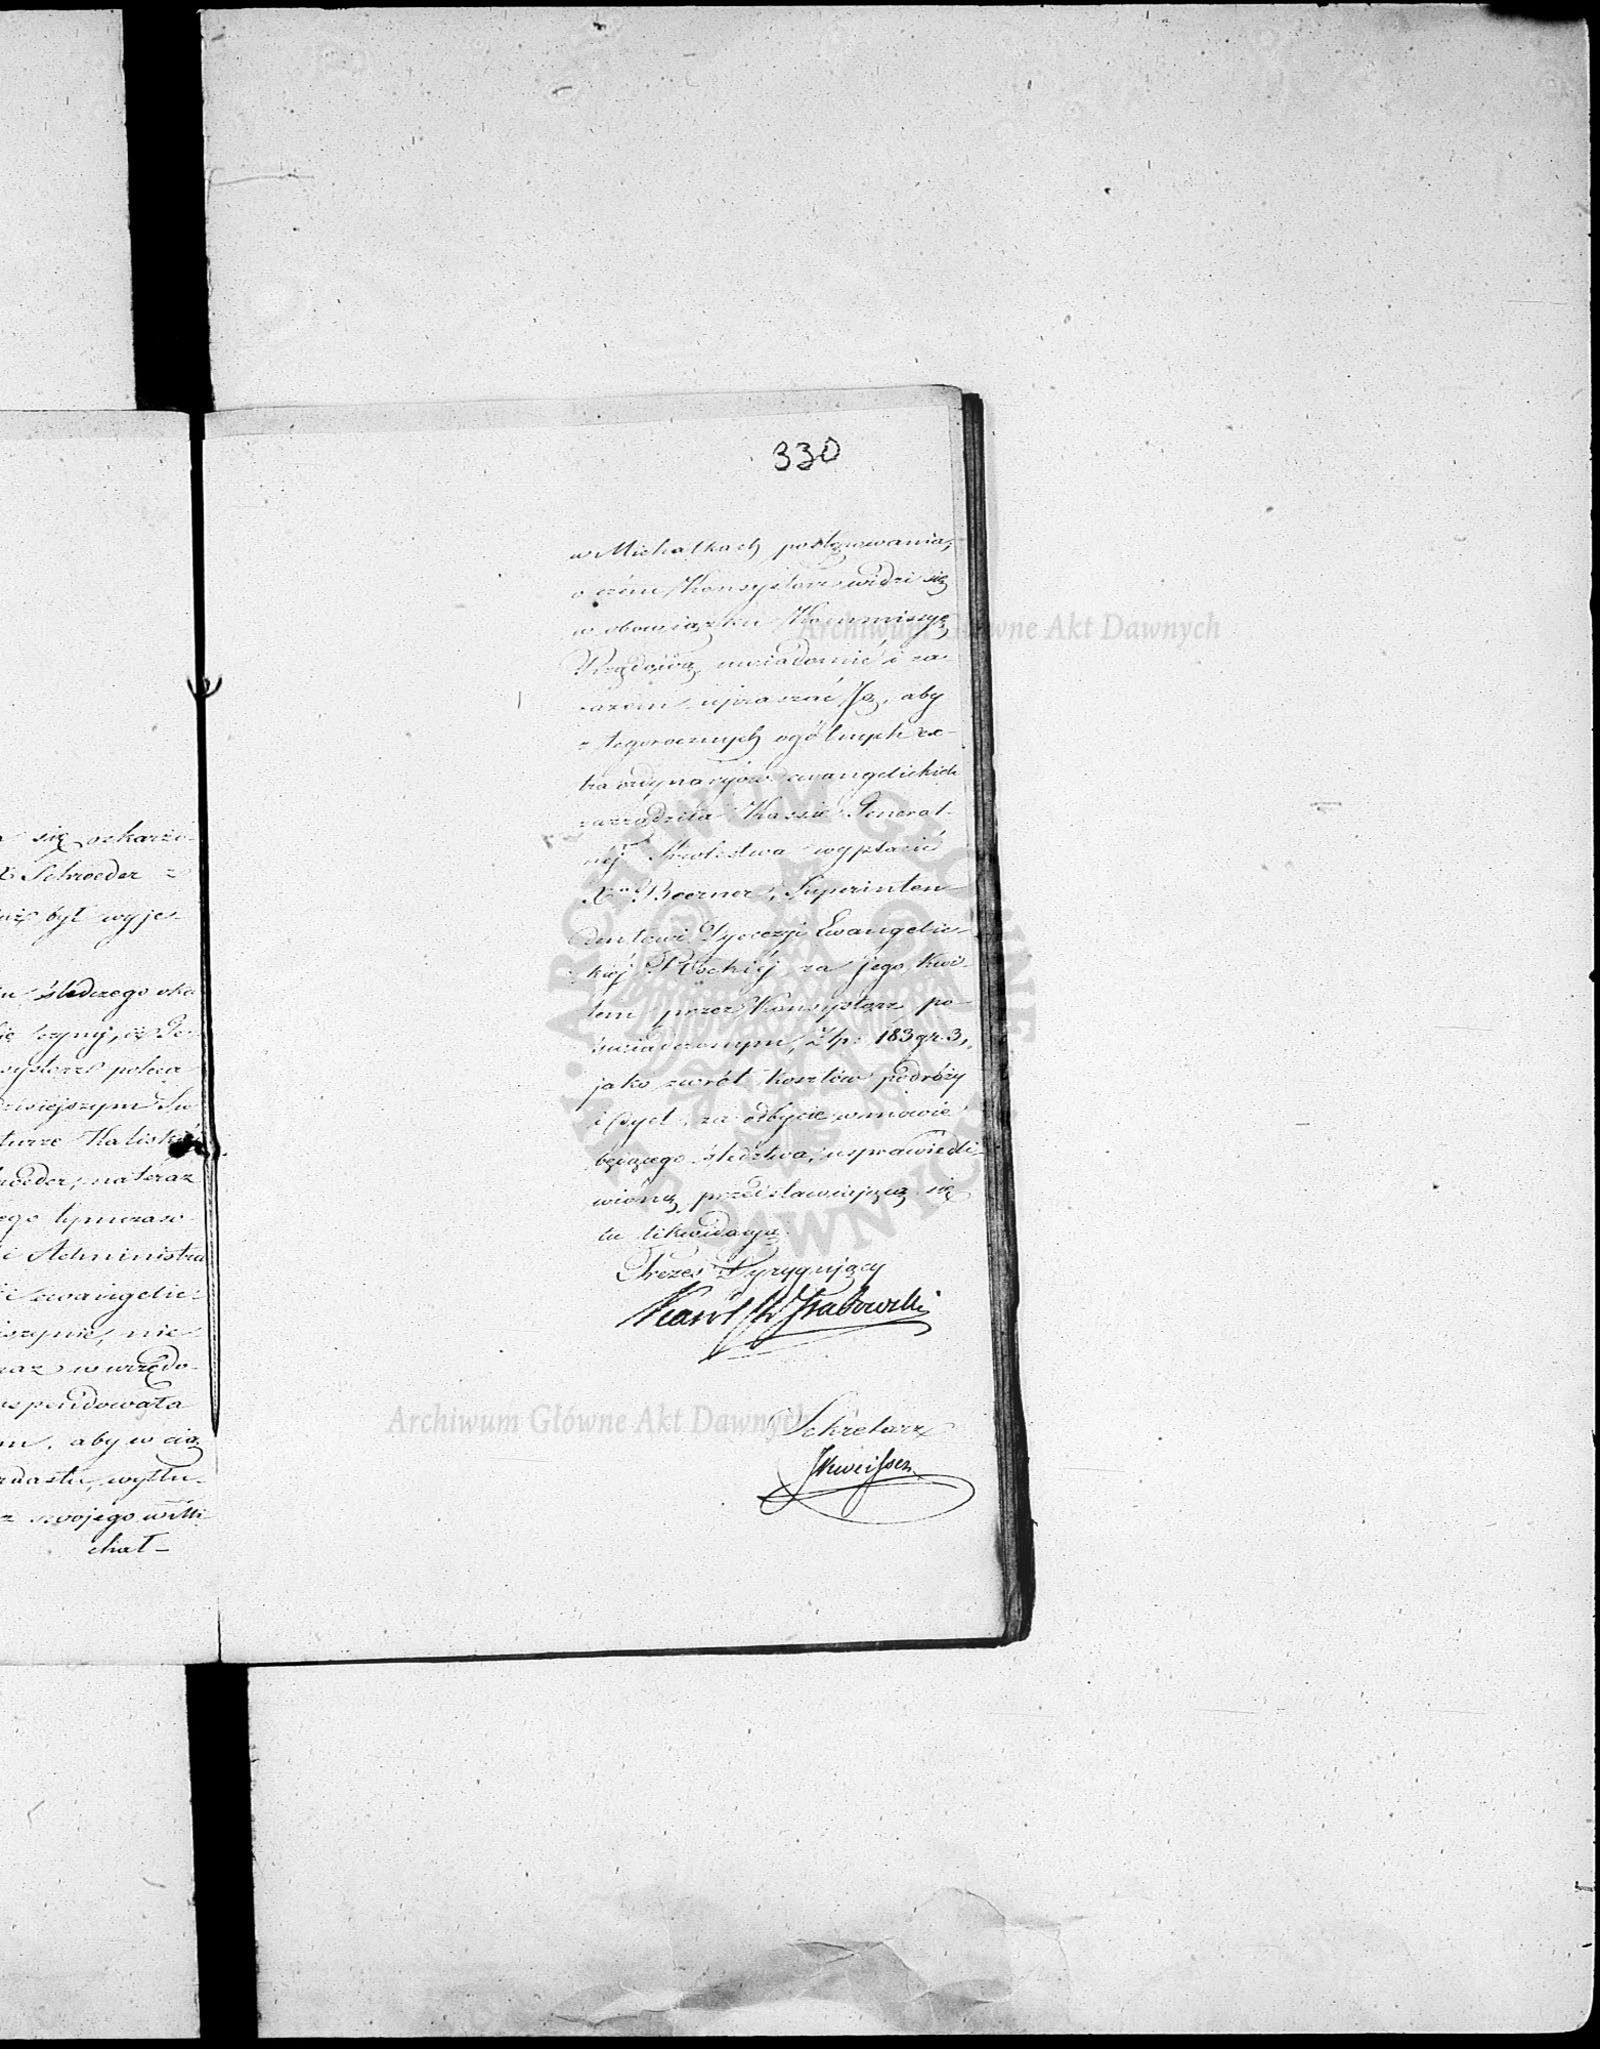 się oskarżo-
X Schroeder z
już był wyjes-
śledczego oka
czyny, iż Ge-
systorz poleca
dzisiejszym Su
turze Kaliskiéj
roeder, na teraz
ego tymczaso-
i Administra
i ewangelic-
szynie, nie-
raz w urzędo-
spendowała
m, aby w cią
nastu, wytłu-
z swojego w Mi-
chał-
330
w Michałkach postępowania,
o czém Konsystorz widzi się
w obowiązku Kommissyę
Rządową uwiadomić i za-
razem upraszać Ją, aby
z tegorocznych ogólnych ex-
traordynaryjów ewangelickich
zarządziła Kassie General-
néj Królestwa wypłacić
Xu Boerner, Superinten-
dentowi Dyecezyi Ewangelic-
kiéj Płockiéj, za jego kwi-
tem przez Konsystorz po-
świadczonym, Złp: 183 gr. 3,
jako zwrót kosztów podróży
i dyet, za odbycie w mowie
będącego śledztwa, usprawiedli-
wioną przedstawiającą się
tu likwidacyą.
Prezes Dyrygujący
Karol Hr Grabowski
Sekretarz
Archiwum Główne Akt Dawnych
Archiwum Główne Akt Dawnych
ARCHIWUM GŁÓWNE AKT DAWNYCH